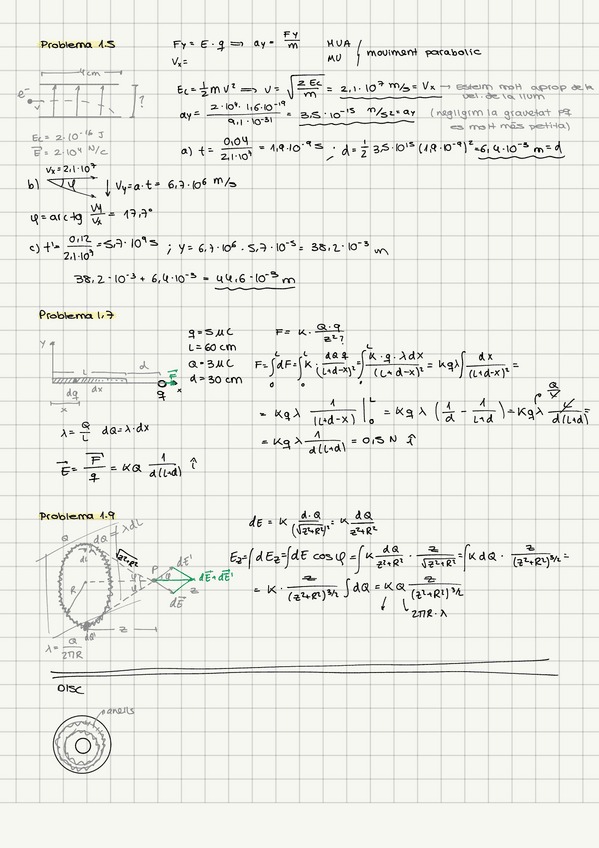 Problema 1.5
Fy = E · q ⟹ ay = Fy/m   MUA
Vx =   MU   moviment parabolic
4 cm
e-
v
?
Ec = 2·10^-16 J
E = 2·10^4 N/C
Ec = 1/2 m v² ⟹ v = √(2Ec/m) = 2,1·10^7 m/s = Vx → Esteim molt aprop de la
vel. de la llum
ay = 2·10^4 · 1,6·10^-19 / 9,1·10^-31 = 3,5·10^-15 m/s² = ay (negligim la gravetat pq
es molt més petita)
a) t = 0,04/2,1·10^7 = 1,9·10^-9 s ; d = 1/2 3,5·10^15 (1,9·10^-9)² = 6,4·10^-3 m = d
Vx = 2,1·10^7
b) φ   Vy = a·t = 6,7·10^6 m/s
φ = arctg Vy/Vx = 17,7°
c) t' = 0,12/2,1·10^7 = 5,7·10^9 s ; y = 6,7·10^6 · 5,7·10^-5 = 38,2·10^-3 m
38,2·10^-3 + 6,4·10^-3 = 44,6·10^-3 m
Problema 1.7
y
L
d
F
dq
dx
q
x
x
q = 5 μC
L = 60 cm
Q = 3 μC
d = 30 cm
F = K · Q·q / z²?
F = ∫₀ᴸ dF = ∫₀ᴸ K · dQ q/(L+d-x)² = ∫₀ᴸ K·q·λdx/(L+d-x)² = Kqλ ∫ dx/(L+d-x)² =
= Kqλ 1/(L+d-x) |₀ᴸ = Kqλ (1/d - 1/(L+d)) = Kqλ L/d(L+d) =
Q/L
= Kqλ 1/d(L+d) = 0,5 N î
λ = Q/L   dQ = λ·dx
E = F/q = KQ 1/d(L+d) î
Problema 1.9
Q
dQ = λdL
dL
√z²+R²
P
dE'
dE + dE'
φ
dE
R
z
z
dQ'
λ = Q/2πR
dE = K d·Q/(√z²+R²)² = K dQ/z²+R²
Ez = ∫dEz = ∫dE cos φ = ∫K dQ/z²+R² · z/√z²+R² = ∫K dQ · z/(z²+R²)^3/2 =
= K · z/(z²+R²)^3/2 ∫dQ = KQ z/(z²+R²)^3/2
2πR·λ
DISC
anells